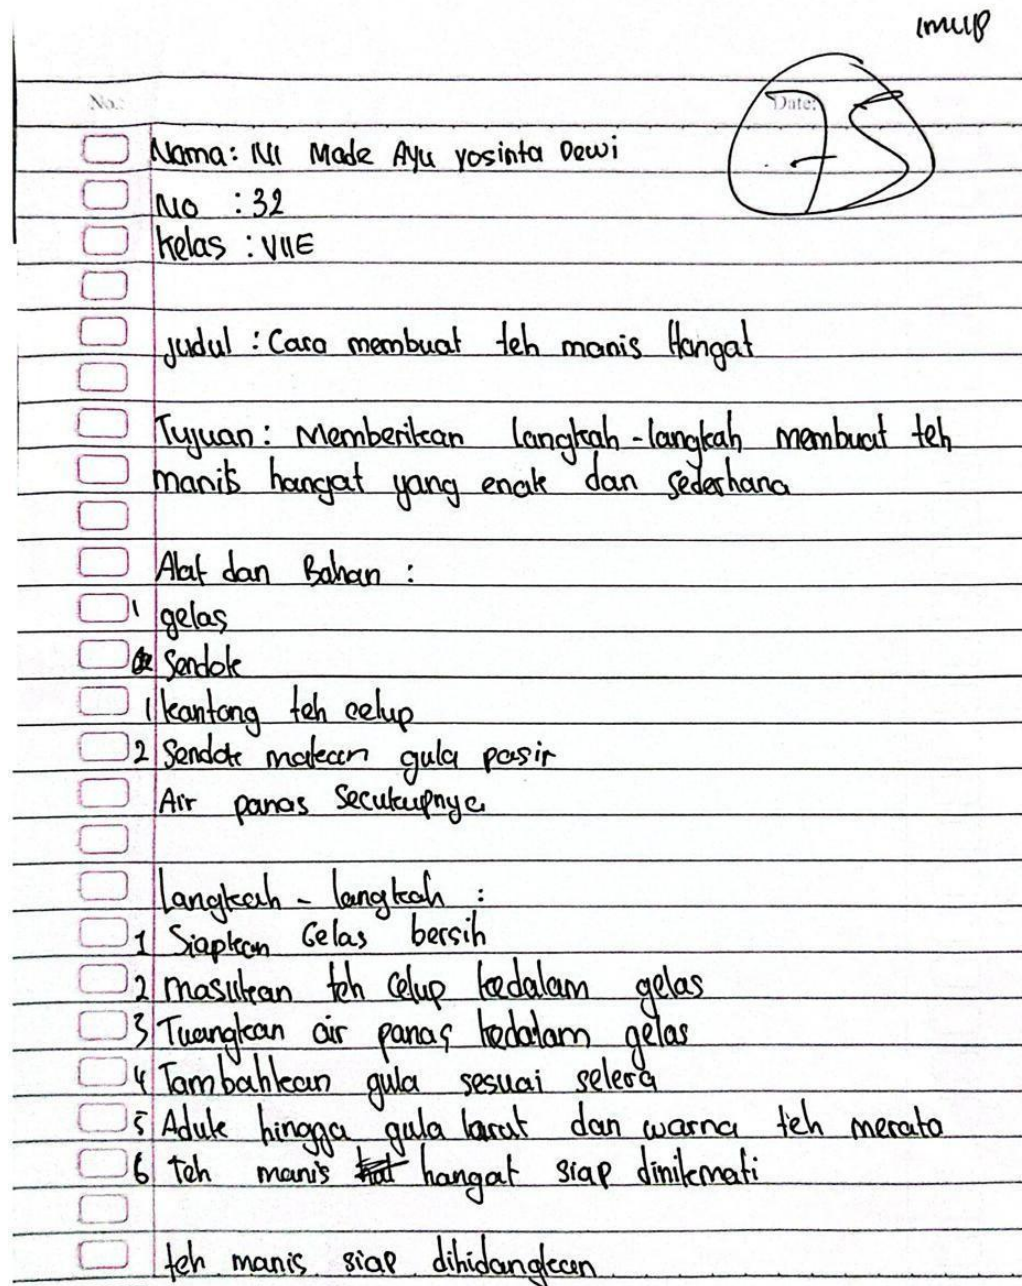 No.:
Date:
75
Nama: Ni Made Ayu Yosinta Dewi
No : 32
Kelas : VIIE
Judul : Cara membuat teh manis Hangat
Tujuan : Memberikan langkah-langkah membuat teh
manis hangat yang enak dan sederhana
Alat dan Bahan :
1 gelas
Sendok
1 kantong teh celup
2 Sendok makan gula pasir
Air panas Secukupnya
Langkah - langkah :
1 Siapkan Gelas bersih
2 masukan teh celup kedalam gelas
3 Tuangkan air panas kedalam gelas
4 Tambahkan gula sesuai selera
5 Aduk hingga gula larut dan warna teh merata
6 teh manis hangat siap dinikmati
teh manis siap dihidangkan